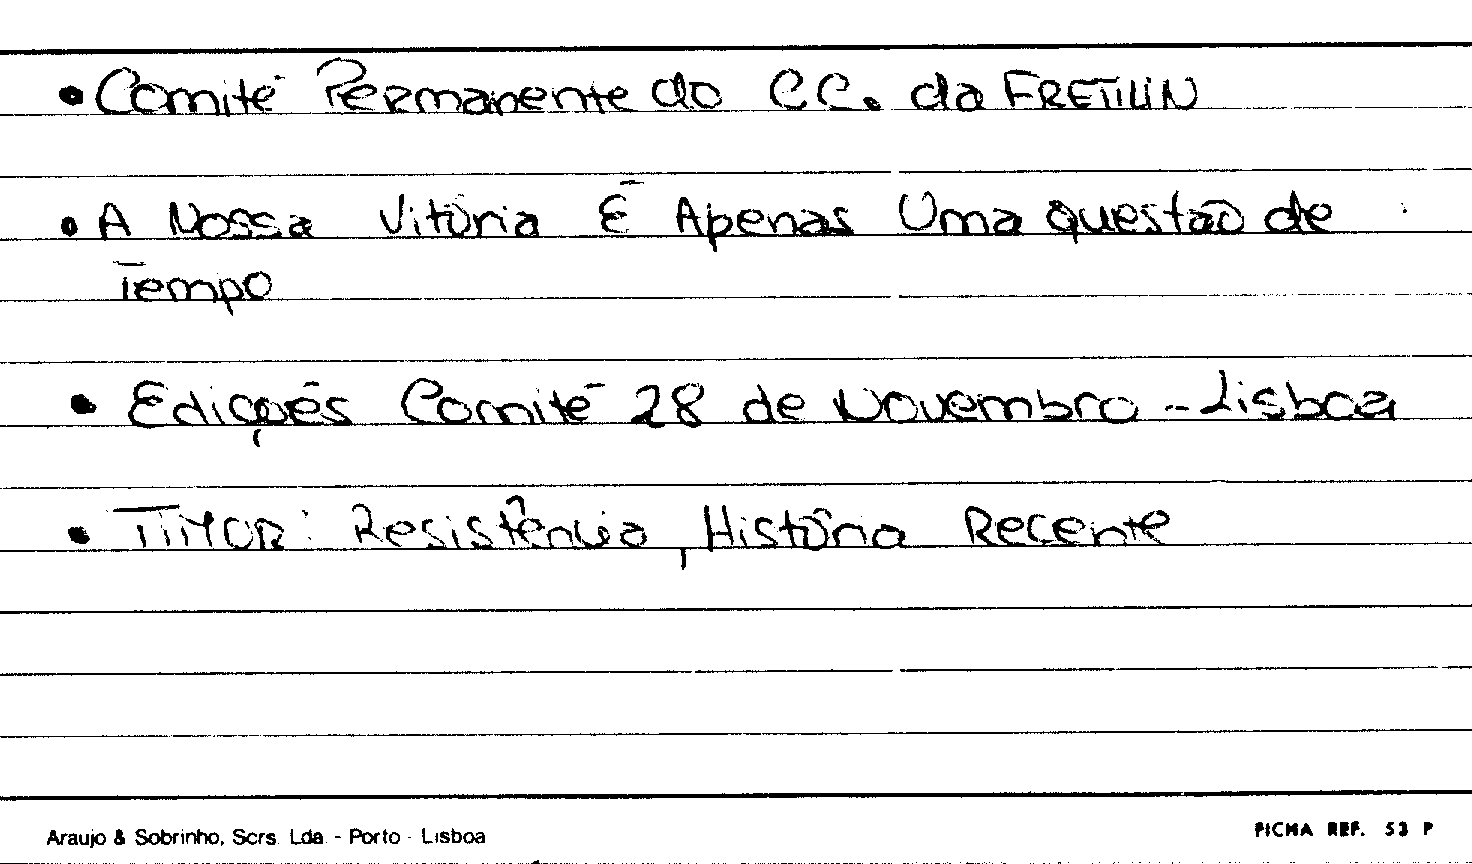 • Comité Permanente do CC. da FRETILIN
• A Nossa Vitória É Apenas Uma questão de
Tempo
• Edições Comité 28 de Novembro - Lisboa
• TIMOR: Resistência, História Recente
Araujo & Sobrinho, Scrs. Lda. - Porto - Lisboa
FICHA REF. 53 P